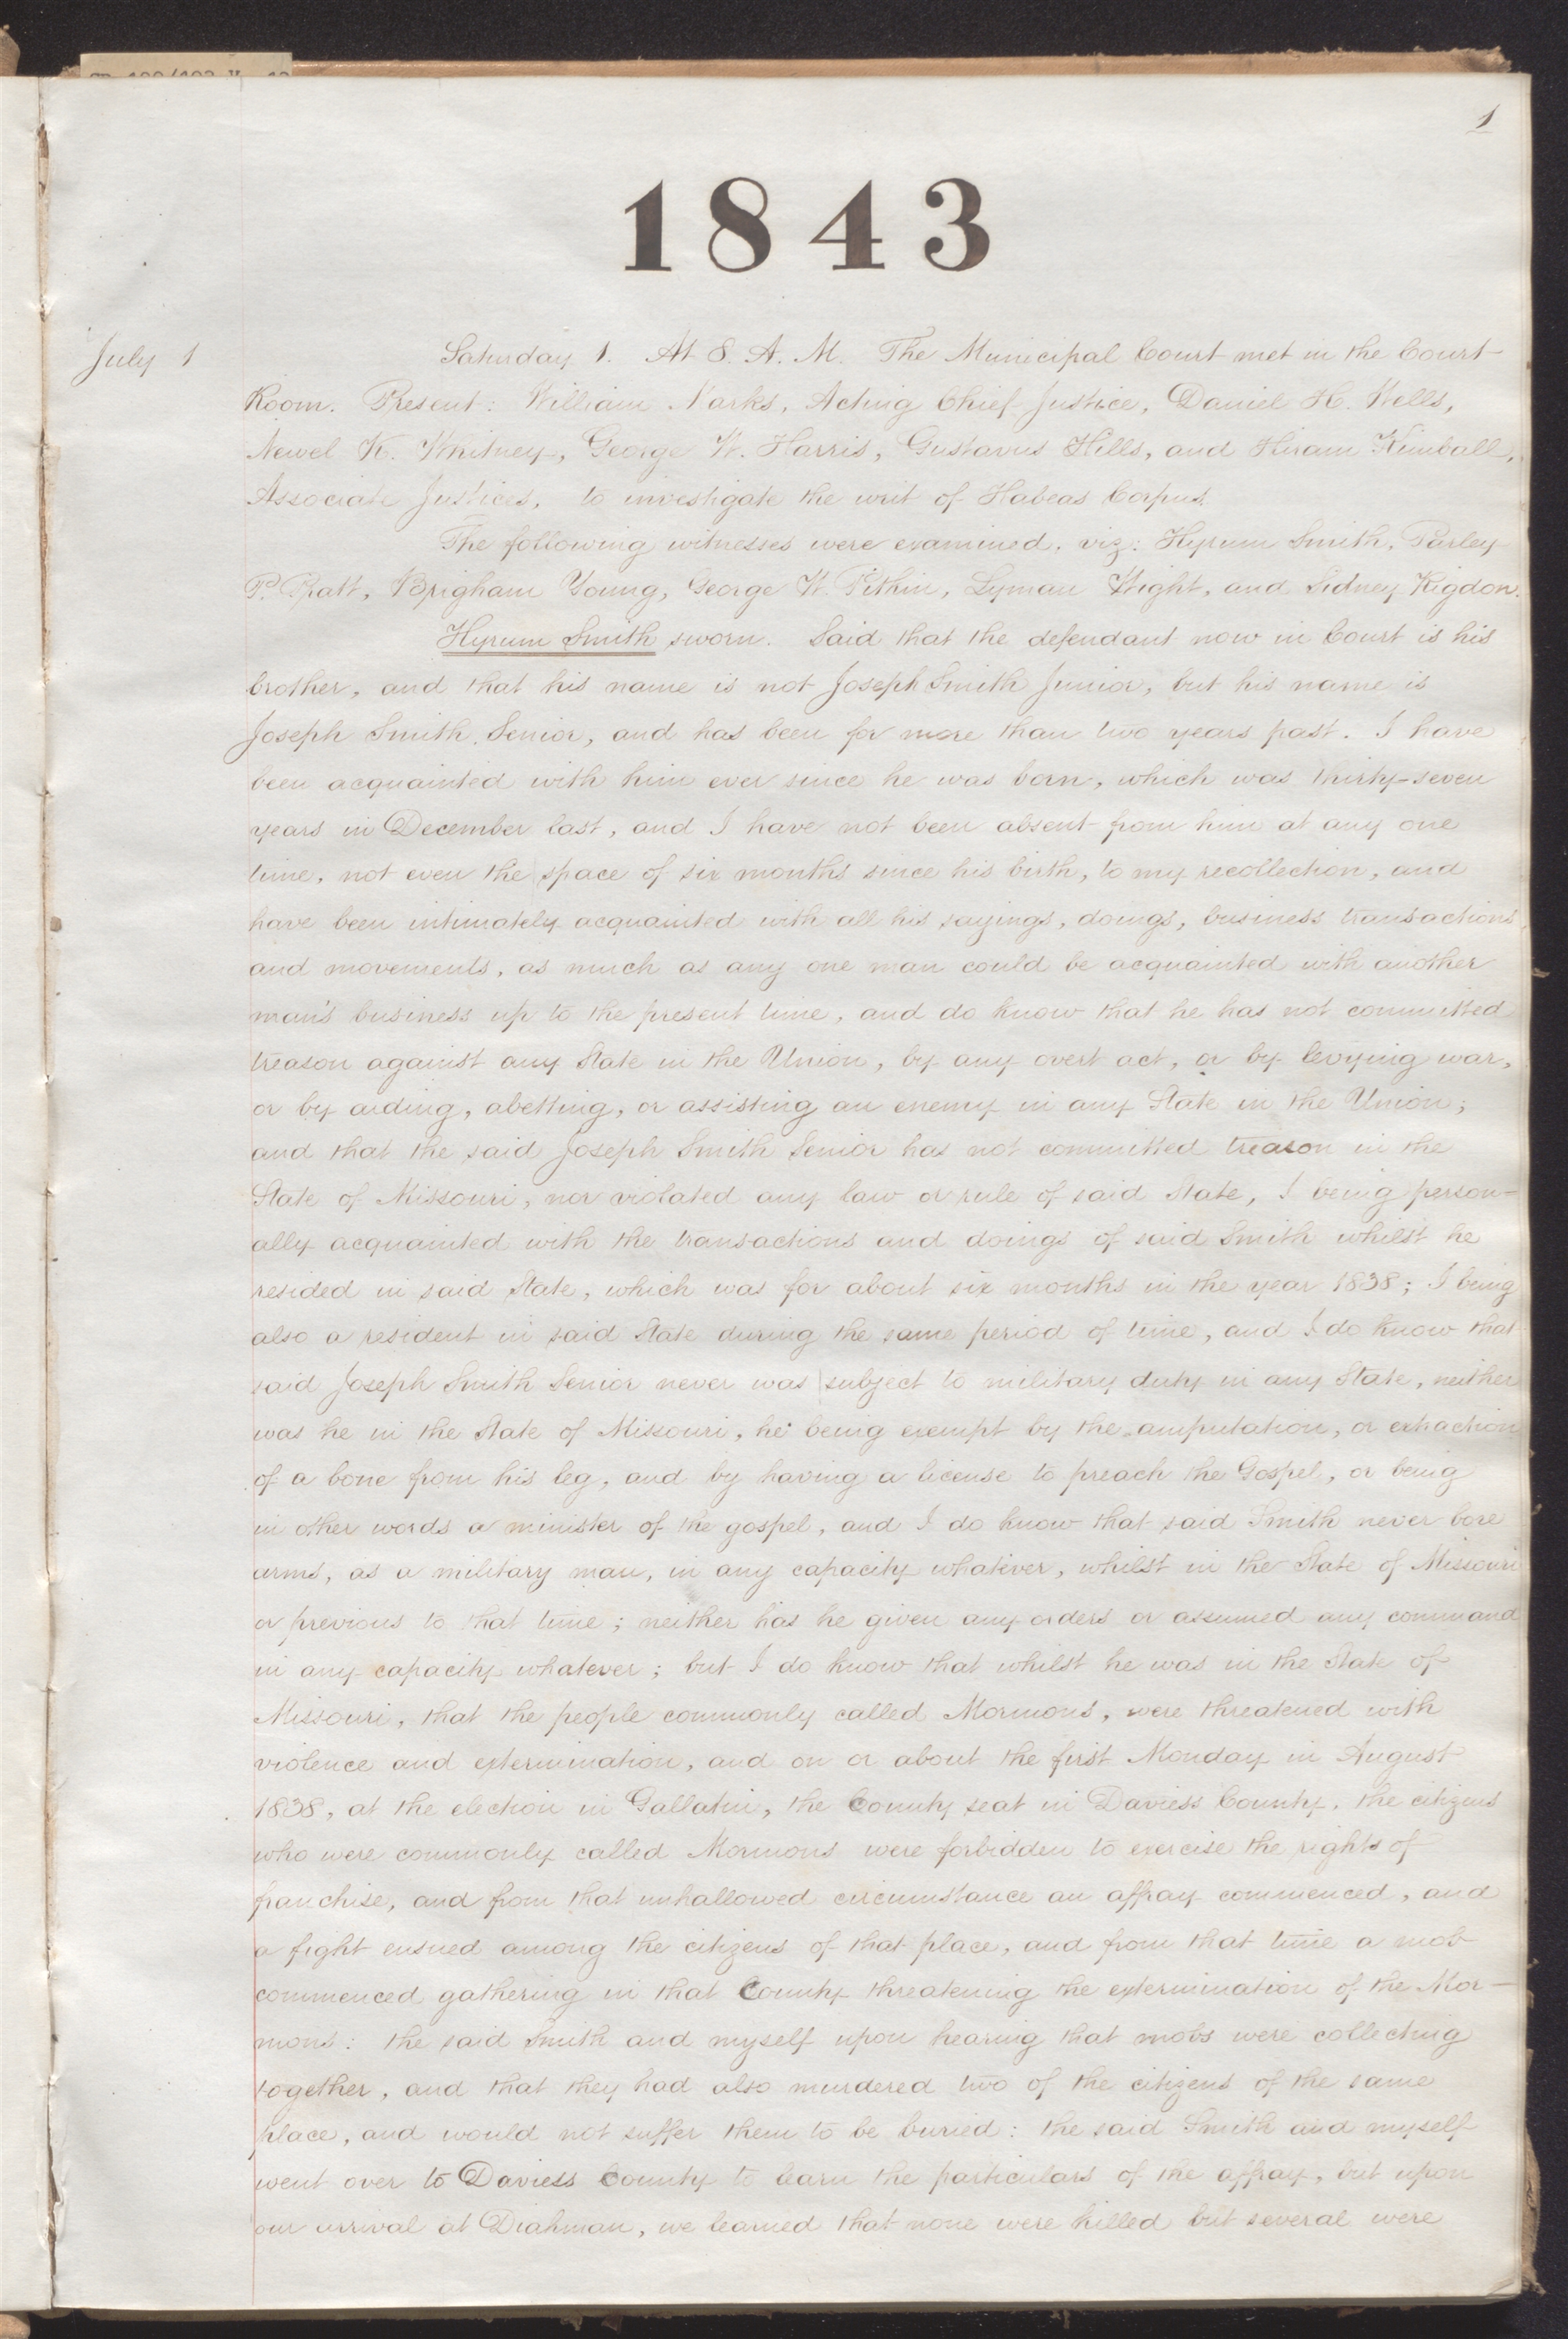 1
1843
July 1
Saturday 1. At 8. A. M. The Municipal Court met in the Court
Room. Present: William Marks, Acting Chief Justice, Daniel H. Wells,
Newel K. Whitney, George W. Harris, Gustavus Hills, and Hiram Kimball,
Associate Justices, to investigate the writ of Habeas Corpus.
The following witnesses were examined, viz: Hyrum Smith, Parley
P. Pratt, Brigham Young, George W. Pitkin, Lyman Wight, and Sidney Rigdon.
Hyrum Smith sworn. Said that the defendant now in Court is his
brother, and that his name is not Joseph Smith Junior, but his name is
Joseph Smith, Senior, and has been for more than two years past. I have
been acquainted with him ever since he was born, which was thirty-seven
years in December last, and I have not been absent from him at any one
time, not even the space of six months since his birth, to my recollection, and
have been intimately acquainted with all his sayings, doings, business transactions
and movements, as much as any one man could be acquainted with another
man's business up to the present time, and do know that he has not committed
treason against any State in the Union, by any overt act, or by levying war,
or by aiding, abetting, or assisting an enemy in any State in the Union;
and that the said Joseph Smith Senior has not committed treason in the
State of Missouri, nor violated any law or rule of said State, I being person=
ally acquainted with the transactions and doings of said Smith whilst he
resided in said State, which was for about six months in the year 1838; I being
also a resident in said State during the same period of time, and I do know that
said Joseph Smith Senior never was subject to military duty in any State, neither
was he in the State of Missouri, he being exempt by the amputation, or extraction
of a bone from his leg, and by having a license to preach the Gospel, or being
in other words a minister of the gospel, and I do know that said Smith never bore
arms, as a military man, in any capacity whatever, whilst in the State of Missouri
or previous to that time; neither has he given any orders or assumed any command
in any capacity whatever; but I do know that whilst he was in the State of
Missouri, that the people commonly called Mormons, were threatened with
violence and extermination, and on or about the first Monday in August
1838, at the election in Gallatin, the County seat in Daviess County, the citizens
who were commonly called Mormons were forbidden to exercise the rights of
franchise, and from that unhallowed circumstance an affray commenced, and
a fight ensued among the citizens of that place, and from that time a mob
commenced gathering in that County threatening the extermination of the Mor-
mons: the said Smith and myself upon hearing that mobs were collecting
together, and that they had also murdered two of the citizens of the same
place, and would not suffer them to be buried: the said Smith and myself
went over to Daviess County to learn the particulars of the affray, but upon
our arrival at Diahman, we learned that none were killed but several were